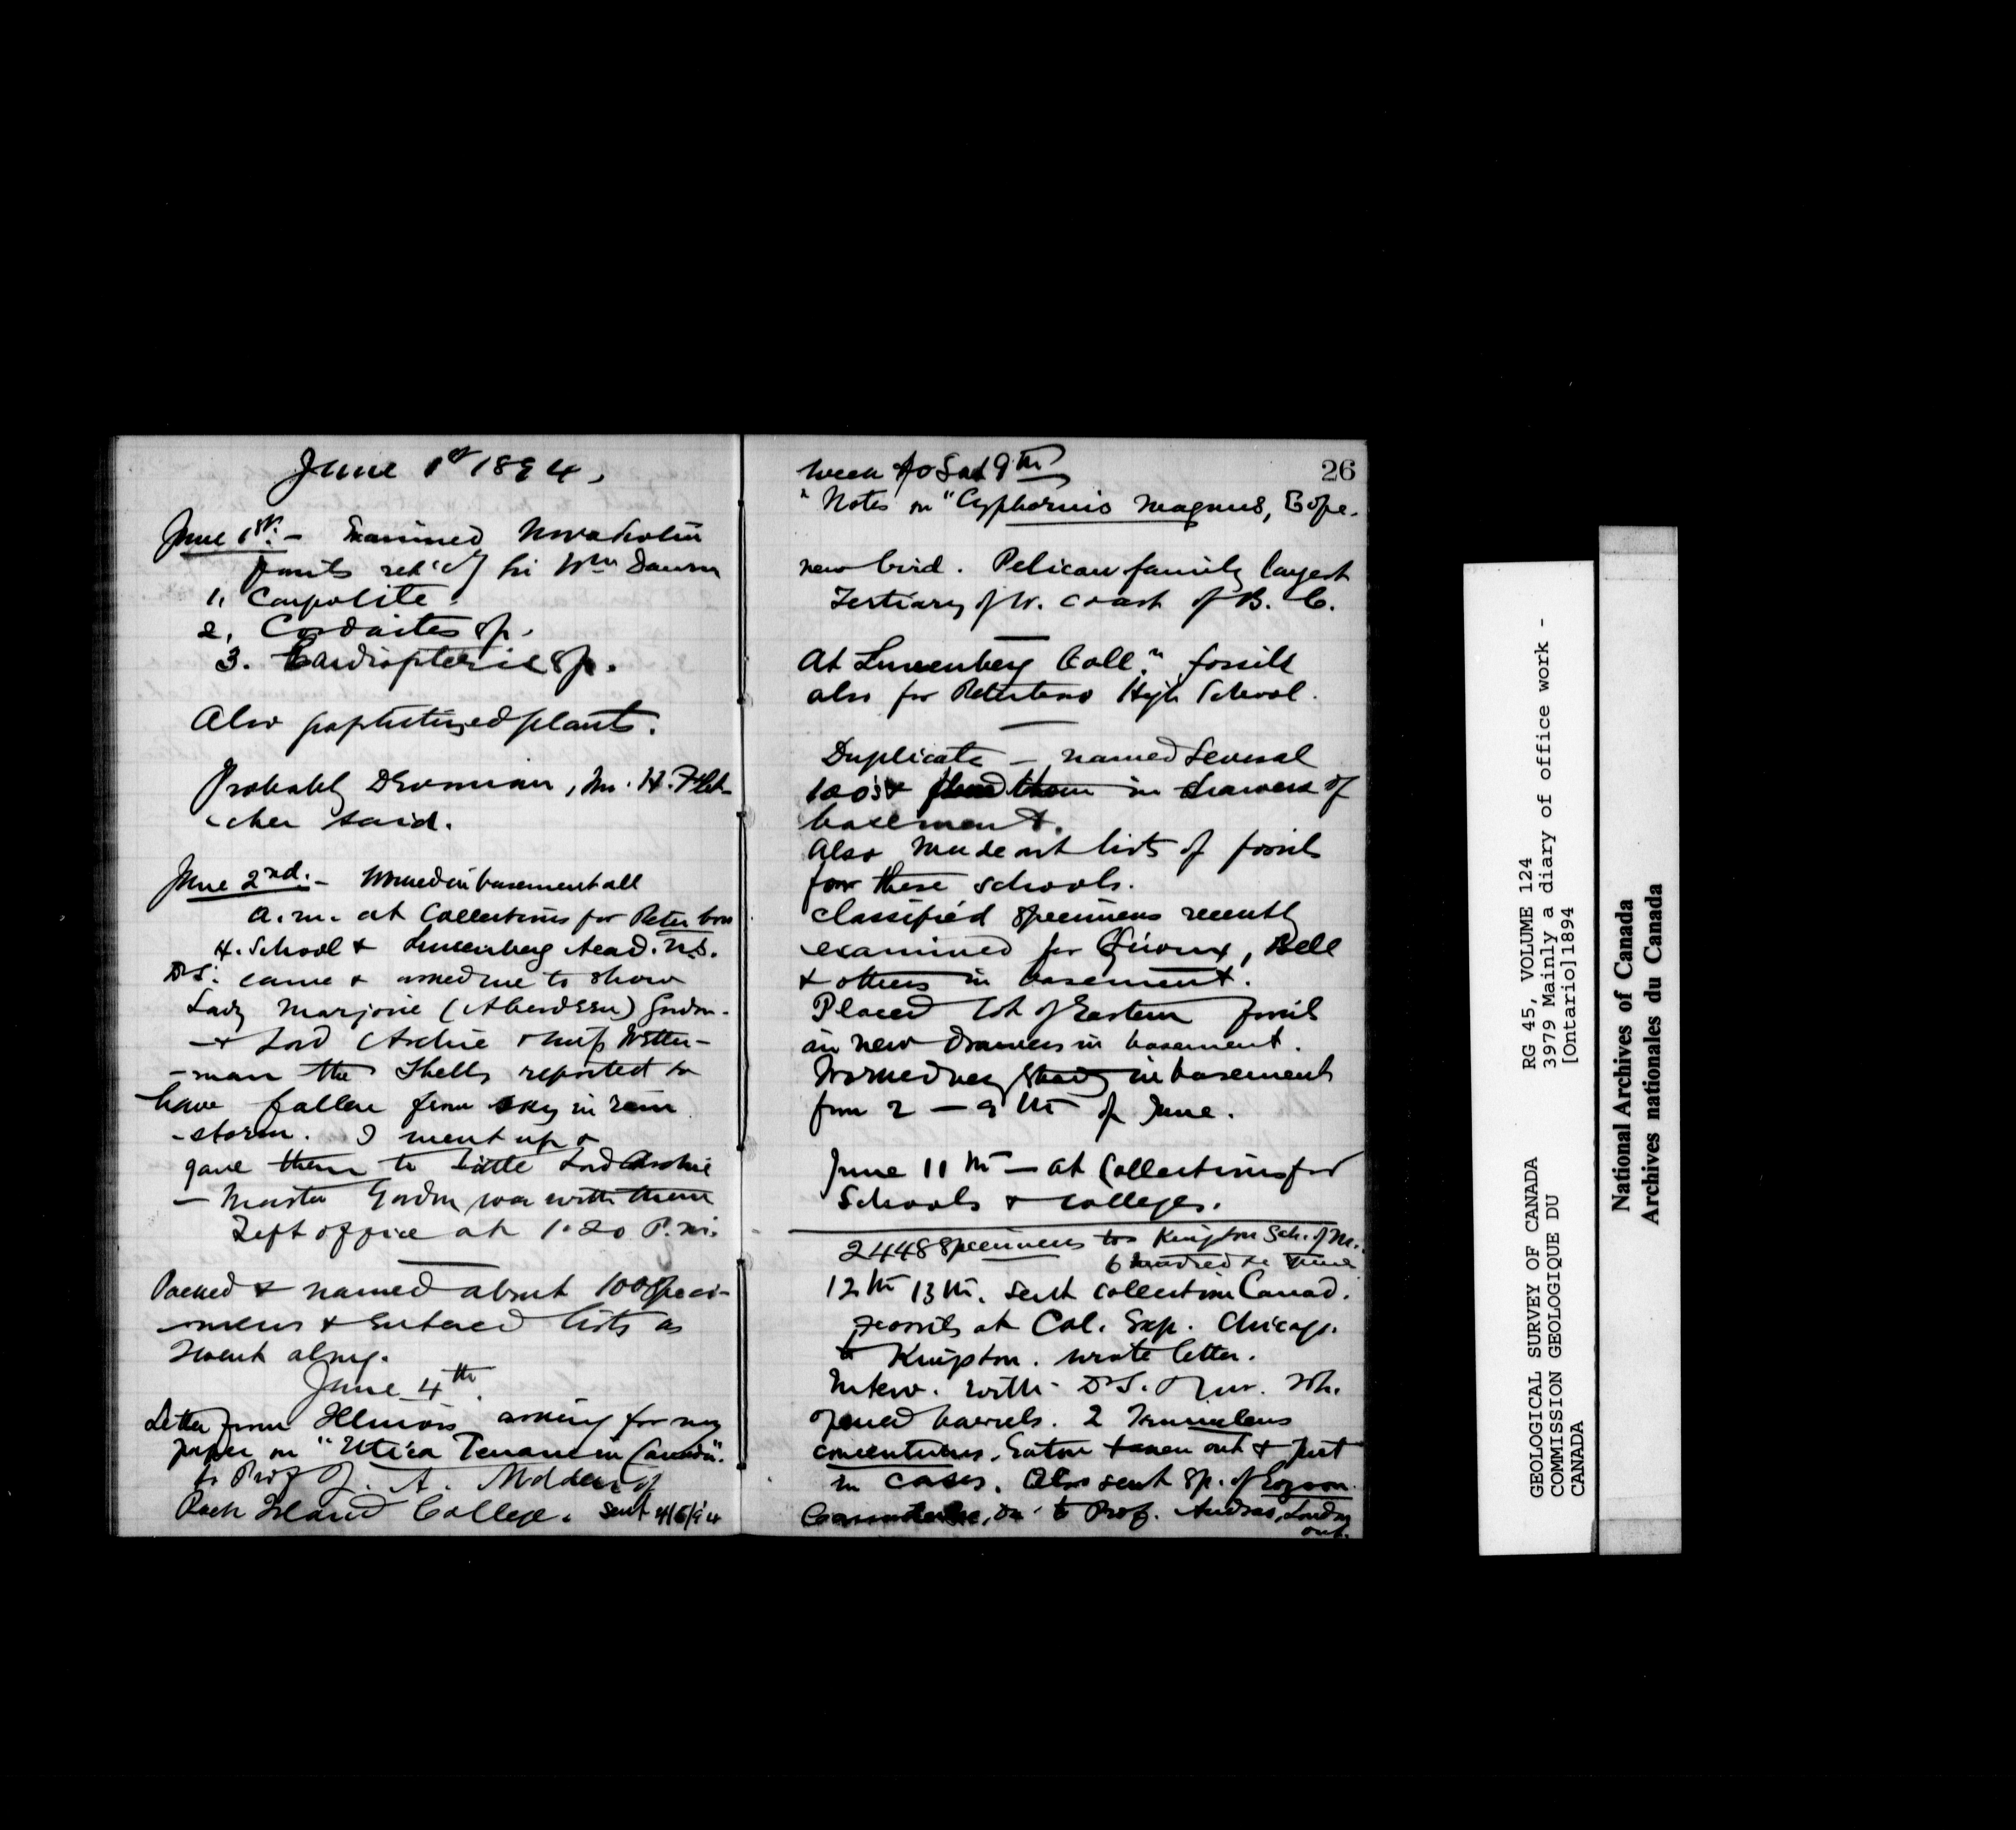 June 1st 1894,
June 1st. - Examined Nova Scotia
fossils ret'd by Sir Wm Dawson
1. Carpolite.
2. Cordaites sp.
3. Cardiopteris sp.
Also plants.
Probably Devonian, Mr. H. Flet-
-cher said.
June 2nd. - Worked in basement all
a.m. at Collections for Peterboro
H. School & Lunenberg Acad. N.S.
D.S. came & asked me to show
Lady Marjorie (Aberdeen) Gordon -
- & Lord Archie & Miss Witter-
-man the Shells reported to
have fallen from sky in rain
-storm. I went up &
gave them to little Lord Archie
- Master Gordon was with them
Left office at 1.20 P.M.
Packed & named about 100 speci-
-mens & entered lists as
I went along.
June 4th.
Letter from Illinois asking for my
paper on "Utica Terrane in Canada".
to Prof J. A. Udden of
Rock Island College. sent 4/6/94
26
Week to Sat 9th
"Notes on "Cyphornis magnus, Cope.
new bird. Pelican family largest
Tertiary of W. coast of B. C.
At Lunenberg Coll.n fossils
also for Peterboro High School.
Duplicate - named several
100's & placed them in drawers of
basement.
Also made out lists of fossils
for these schools.
Classified specimens recently
examined for Giroux, Bell
& others in basement.
Placed lot of Eastern fossils
in new drawers in basement.
Worked very steady in basement
from 2 - 9th of June.
June 11th - at Collections for
Schools & colleges.
2448 specimens to Kingston Sch. of M.
6 hundred &
12th 13th. Sent collection Canad.
fossils at Col. Exp. Chicago.
to Kingston. wrote letter.
Interv. with D.S. & Mr. Wh.
opened barrels. 2 Trinucleus
concentricus, Eaton taken out & put
in cases. Also sent sp. of Eozoon
Canadense, Dn. to Prof. Andras, London
Ont.
GEOLOGICAL SURVEY OF CANADA
COMMISSION GEOLOGIQUE DU
CANADA
RG 45, VOLUME 124
3979 Mainly a diary of office work -
[Ontario]1894
National Archives of Canada
Archives nationales du Canada